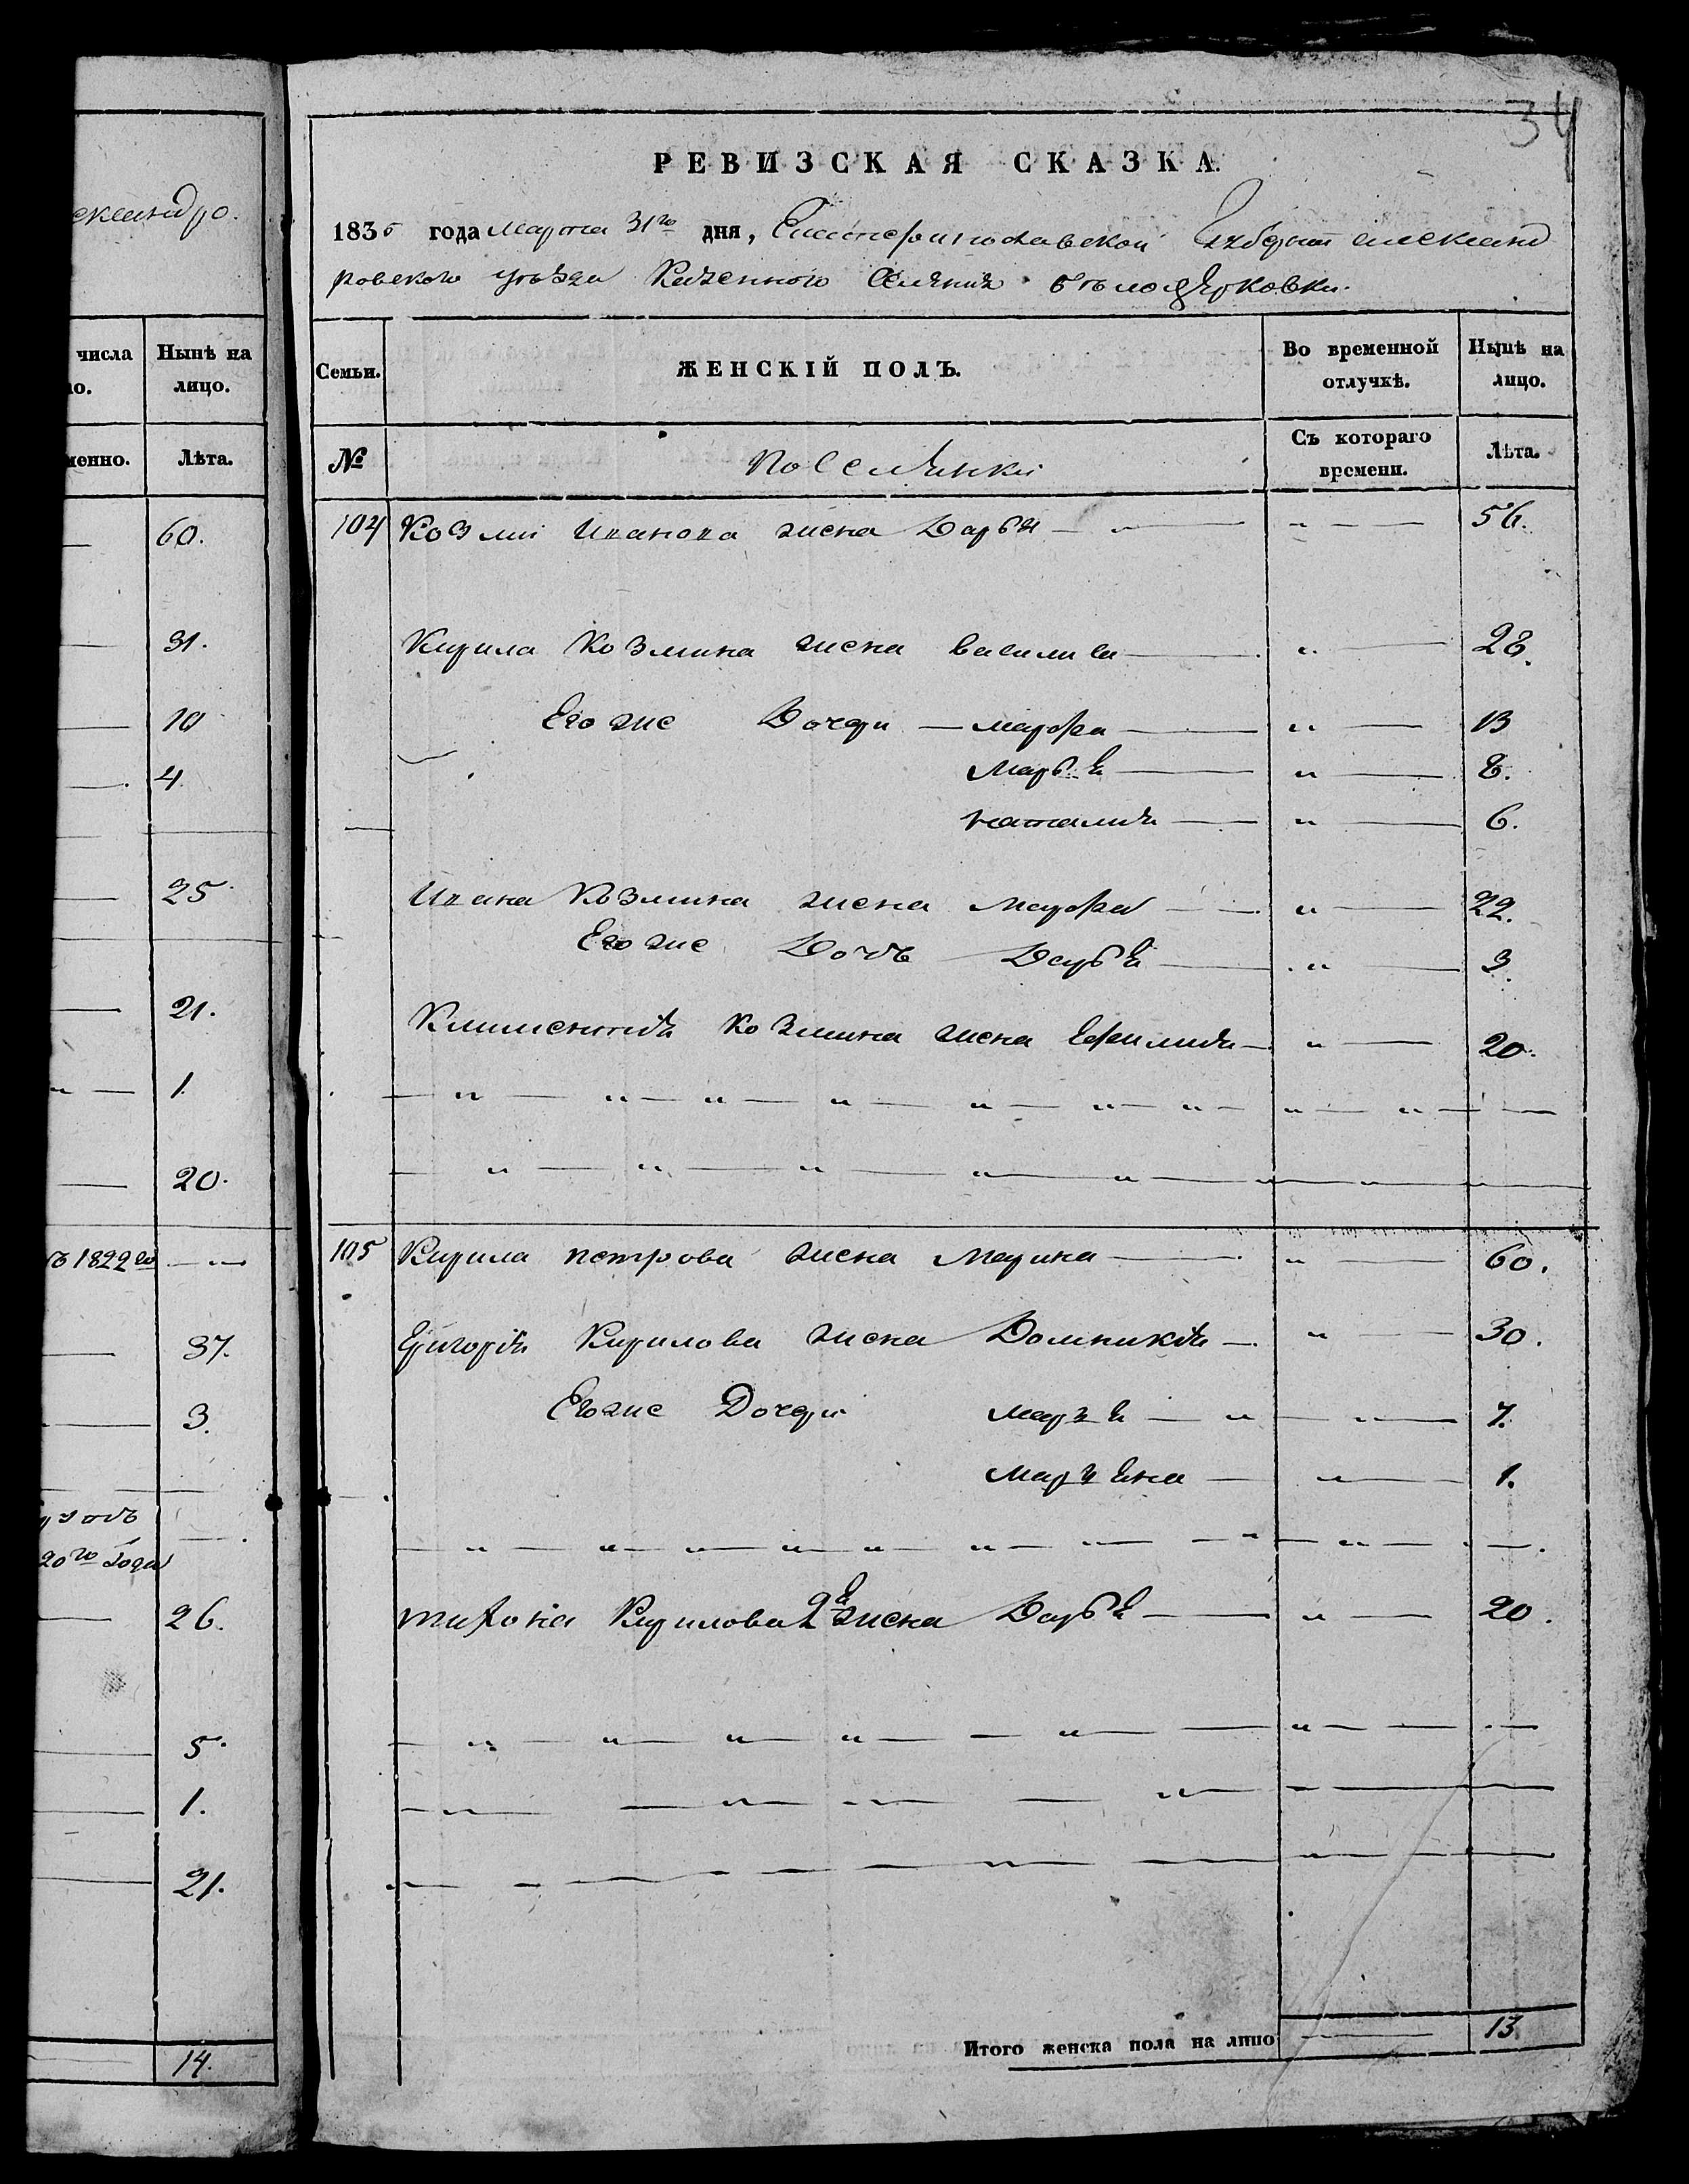 ександро.
числа Нынѣ на
но. лицо.
менно. Лѣта.
60.
31.
10
4
25
21.
1.
20.
1822го
37.
3.
20го года
26.
5.
1.
21.
14.
34
РЕВИЗСКАЯ СКАЗКА.
1835 года Марта 31го дня, Екатеринославской Губерніи александ
ровского уѣзда Казенного Селенія бѣлоцерковки.
Семьи. ЖЕНСКІЙ ПОЛЪ. Во временной отлучкѣ. Нынѣ на лицо.
№ Поселянки Съ котораго времени. Лѣта.
104 Козми Иванова жена Дарья — " — 56.
Кирила Козмина жена василиса — " — 28.
Его же Дочери — марфа — " — 13
Марья — " — 8.
наталия — " — 6.
Ивана Козмина жена Марфа — " — 22.
Его же Дочь Дарья — " — 3.
Климентія Козмина жена Ефимия — " — 20.
105 Кирила петрова жена Марина — " — 60.
Григорія Кирилова жена Домникія — " — 30.
Его же Дочери Марья — " — 7.
Марьяна — " — 1.
тихона Кирилова 2я жена Дарья — " — 20.
Итого женска пола на лицо — 13